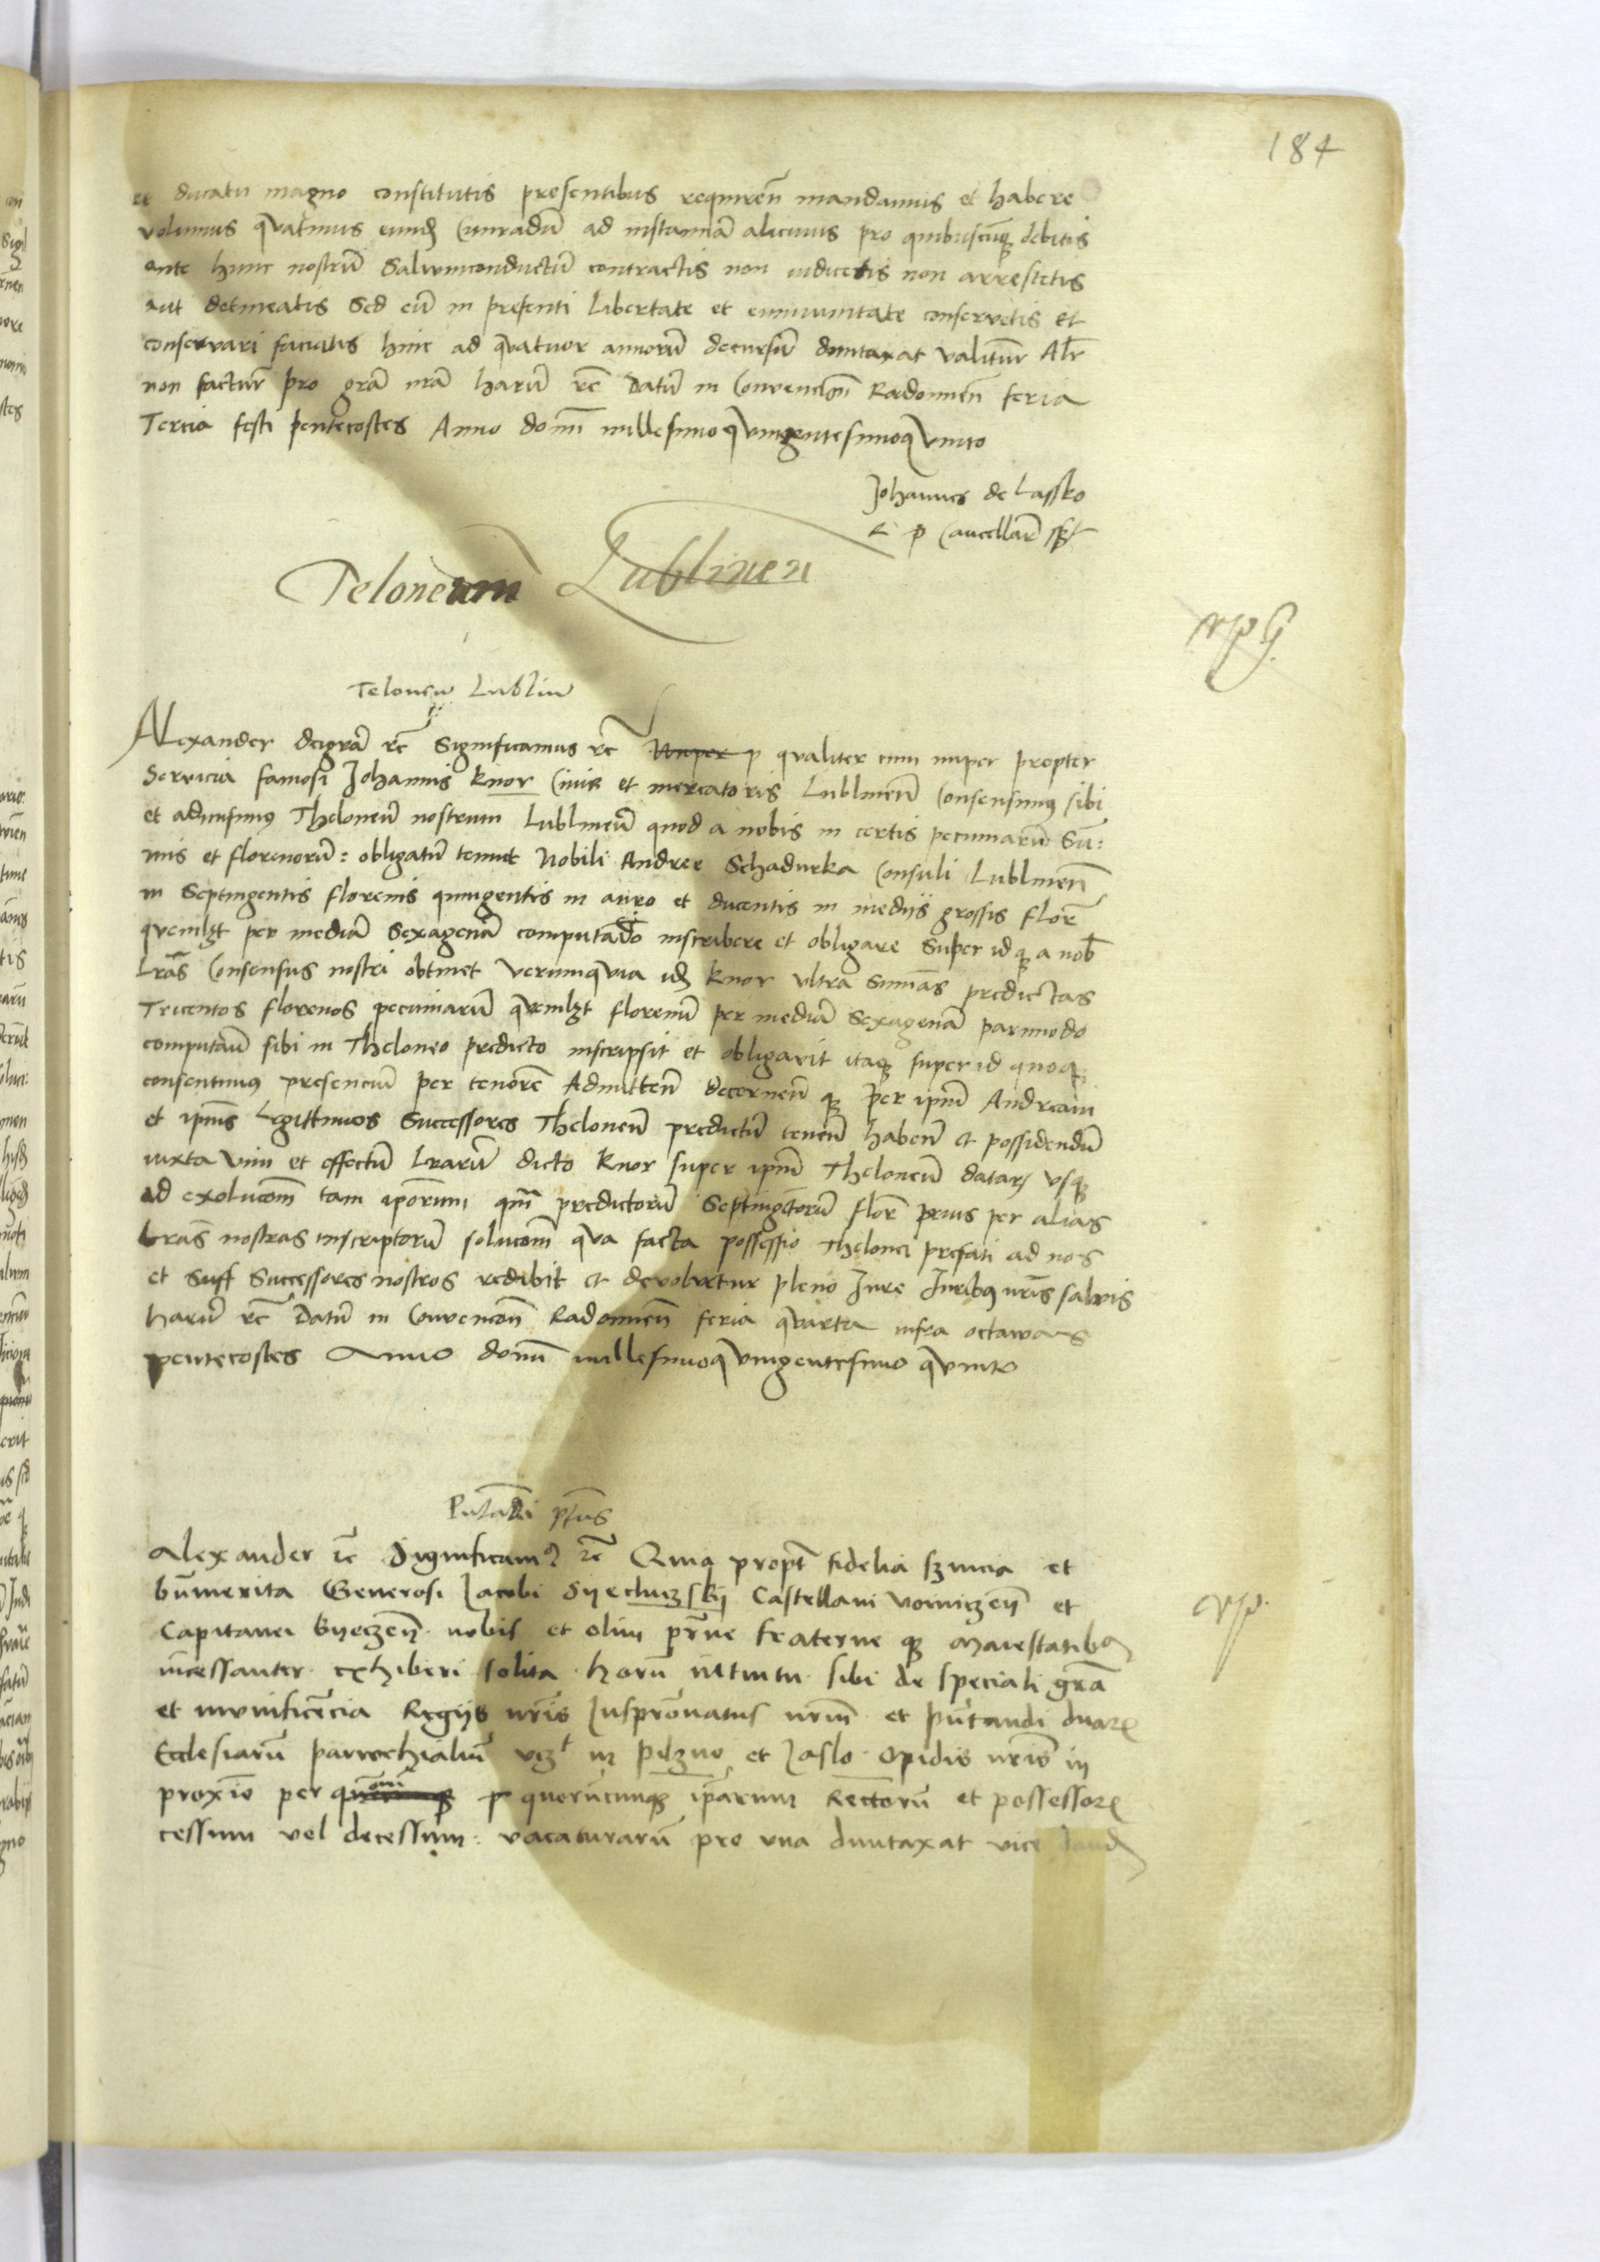 184
et ducatu magno constitutis presentibus requiren̄ mandamus et habere
volumus qvatinus eundē Cunradū ad instanciā alicuius pro quibuscūq debitis
ante hunc nostrū Salvumconductū contractis non iudicetis non arrestetis
aut detineatis Sed eū in presenti libertate et emmunitate conservetis et
conservari faciatis hinc ad qvatuor annorū decursū duntaxat valitur̄ Alr̄
non factur̄ pro grā nrā harū rc̄ Datū in Convencōn̄ Radomien̄ feria
Tercia festi pentecostes Anno dom̄ millesimoqvingentesimoqvinto
Johannes de Lassko
R p Cancellar̄ sspt
Teloneum Lublinen
rpG
Teloneū Lublin̄
Alexander deigrā rc̄ Significamus rc̄ Nuper p qvaliter cum nuper propter
Servicia famosi Johannis Knor Civis et mercatoris Lublinen̄ Consensimus sibi
et admisimus Theloneū nostrum Lublinen̄ quod a nobis in certis pecuniarū Sū:
mis et florenorū: obligatū tenuit Nobili Andree Schadurka Consuli Lublinen̄
in Septingentis florenis quingentis in auro et ducentis in mediis grossis flor̄
quemlzt per mediā Sexagenā computādo inscribere et obligare Super idq a nob̄
Lrās Consensus nostri obtinet verumqvia idē Knor ultra Summas predictas
Tricentos florenos pecuniarū qvemlzt florenū per mediā Sexagenā parimodo
computan̄ sibi in Theloneo predicto inscripsit et obligavit itaq super id quoq
consentimus presenciū per tenorē Admitten̄ decernen̄ q per ipm̄ Andream
et ipius Legittimos Successores Theloneū predictū tenen̄ haben̄ et possidendū
iuxta vim et effectū Lrarū dicto Knor super ipm̄ Theloneū datar̄ usq
ad exolucōm̄ tam ipōrum qm̄ predictorū Septingētorū flor̄ prius per alias
Lrās nostras inscriptorū solucōm̄ qva facta possessio Thelonei prefati ad nos
et Suff Successores nostros redibit et devolvetur pleno Jure Juribus nrīs salvis
harū rc̄ Datū in Convencōn̄ Radomien̄ feria qvarta infra octavas
pentecostes Anno dom̄ millesimoqvingentesimo qvinto
Alexander rc̄ Significam9 rc̄ Quia propt̄ fidelia s̄vicia et
bn̄merita Generosi Jacobi Syecluczskij Castellani Voiniczen̄ et
Capitanei Byeczen̄ nobis et olim p̄rne fraterne q Maiestatibus
incessanter exhiberi solita horū intuitu sibi de speciali grā
et munificēcia Regiis nrīs Juspr̄onatus nrm̄ et pn̄tandi duar̄
Ecclesiarū parrochialiū vizt in pilzno et Jaslo opidis nrīs in
proxīo per p quorūcunq ip̄arum Rectorū et possessor̄
cessum vel decessum vacaturarū pro una duntaxat vice